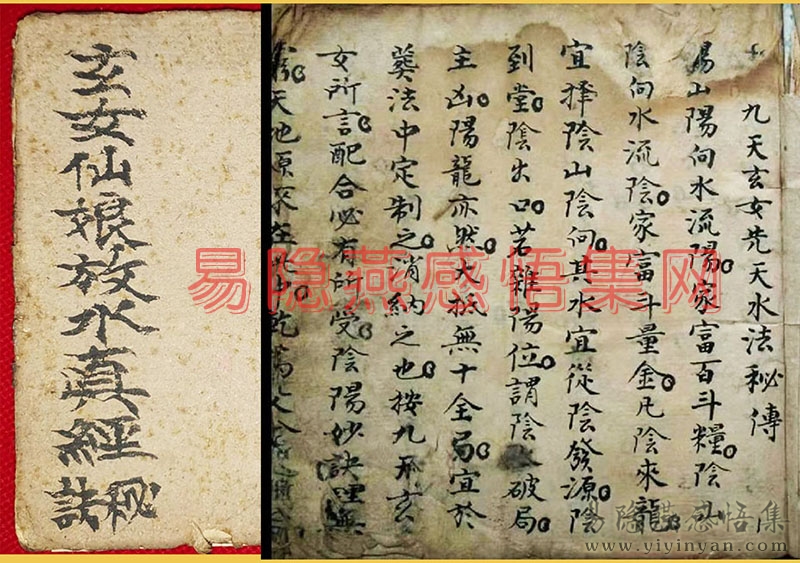 玄女仙娘放水眞經
秘訣
九天玄女先天水法秘傳
陽山陽向水流陽。家富百斗糧。陰山
陰向水流陰。家富斗量金。凡陰來龍。
宜擇陰山陰向。其水宜從陰發源。陰
到堂。陰出口。若雜陽位。謂陰破局。
主凶。陽龍亦然。大抵無十全局。宜於
葬法中定制之消納之也。按九天玄
女所言。配合必有所受。陰陽妙訣理無
天地原
易隐燕感悟集网
易隐燕感悟集
www.yiyinyan.com